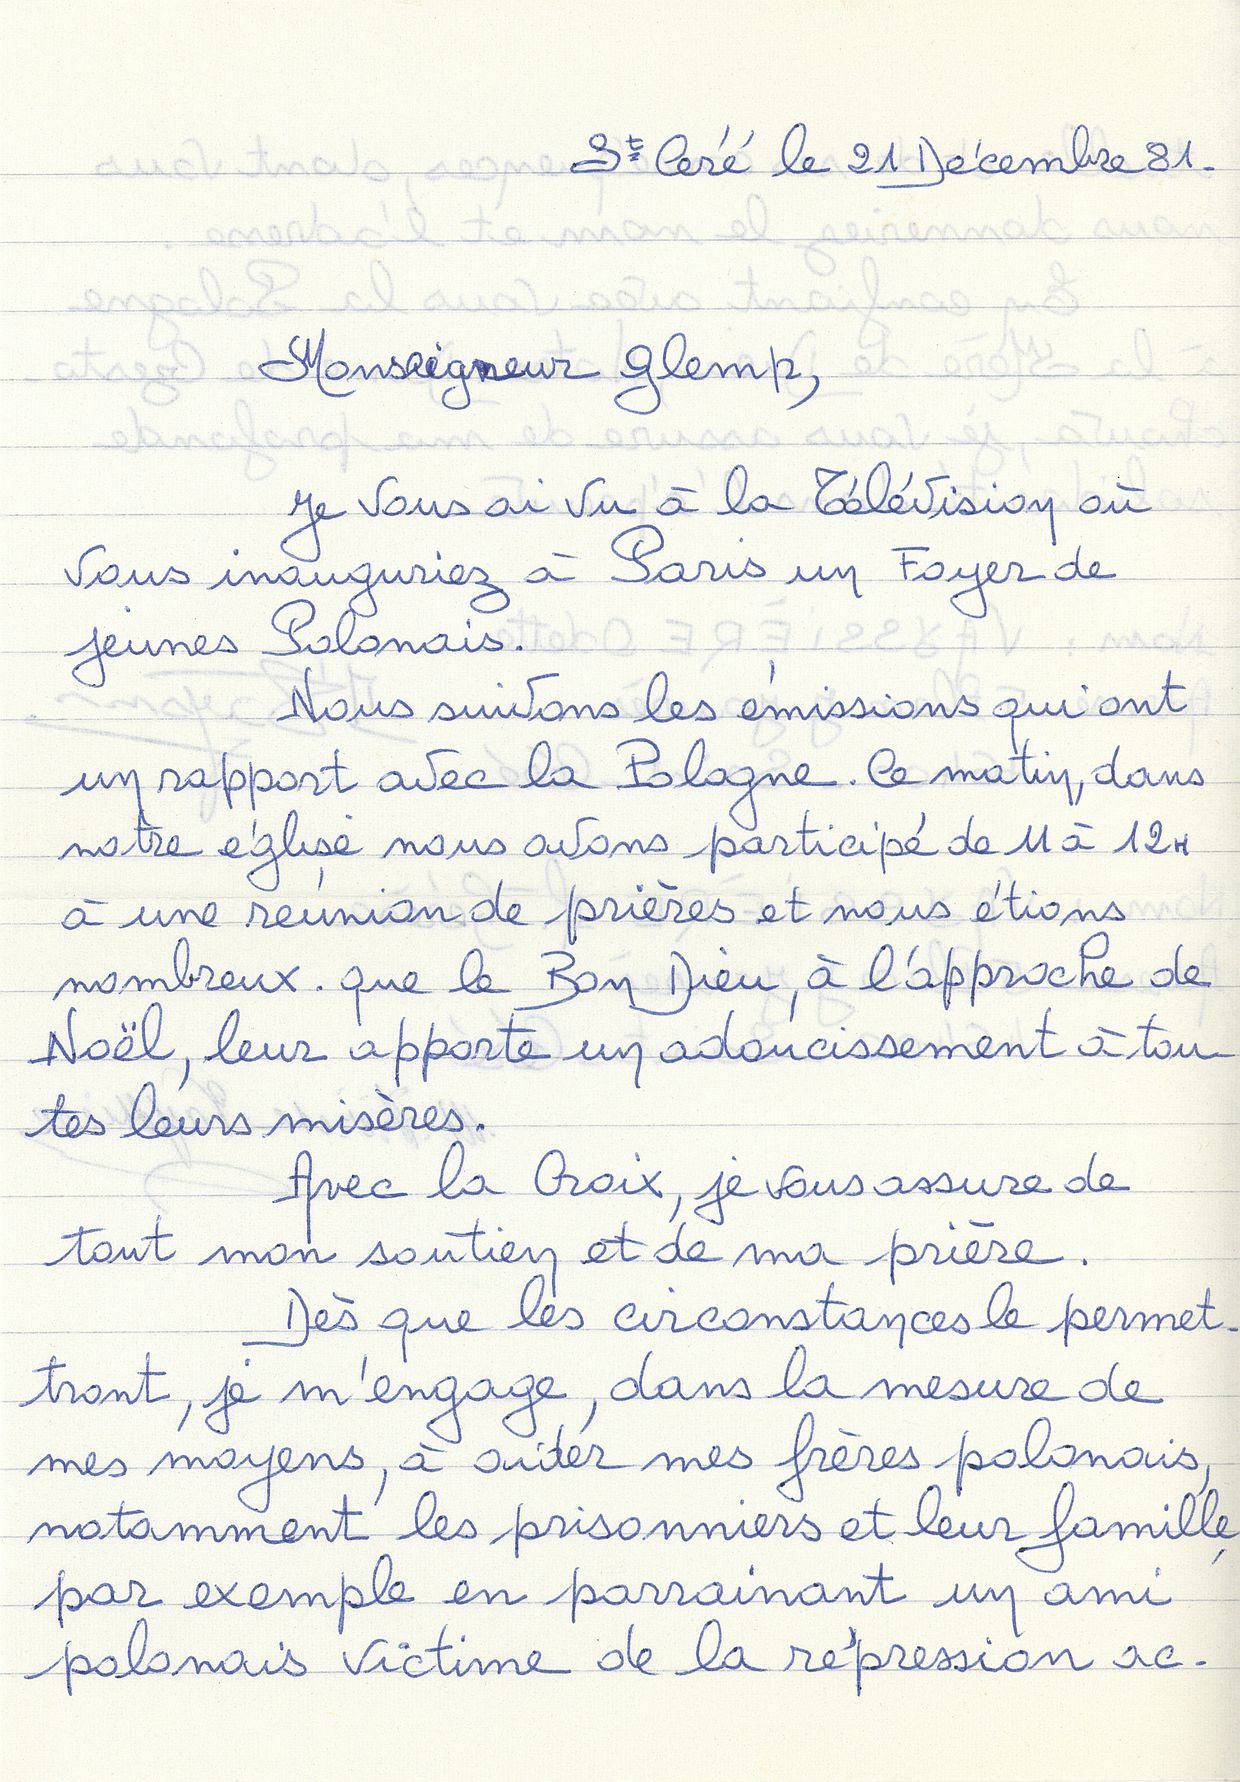 St Céré le 21 Décembre 81.
Monseigneur Glemp,
Je vous ai vu à la Télévision où
vous inauguriez à Paris un Foyer de
jeunes Polonais.
Nous suivons les émissions qui ont
un rapport avec la Pologne. Ce matin, dans
notre église nous avons participé de 11 à 12H
à une réunion de prières et nous étions
nombreux. que le Bon Dieu, à l'approche de
Noël, leur apporte un adoucissement à tou-
tes leurs misères.
Avec la Croix, je vous assure de
tout mon soutien et de ma prière.
Dès que les circonstances le permet-
tront, je m'engage, dans la mesure de
mes moyens, à aider mes frères polonais,
notamment les prisonniers et leur famille,
par exemple en parrainant un ami
polonais victime de la répression ac-